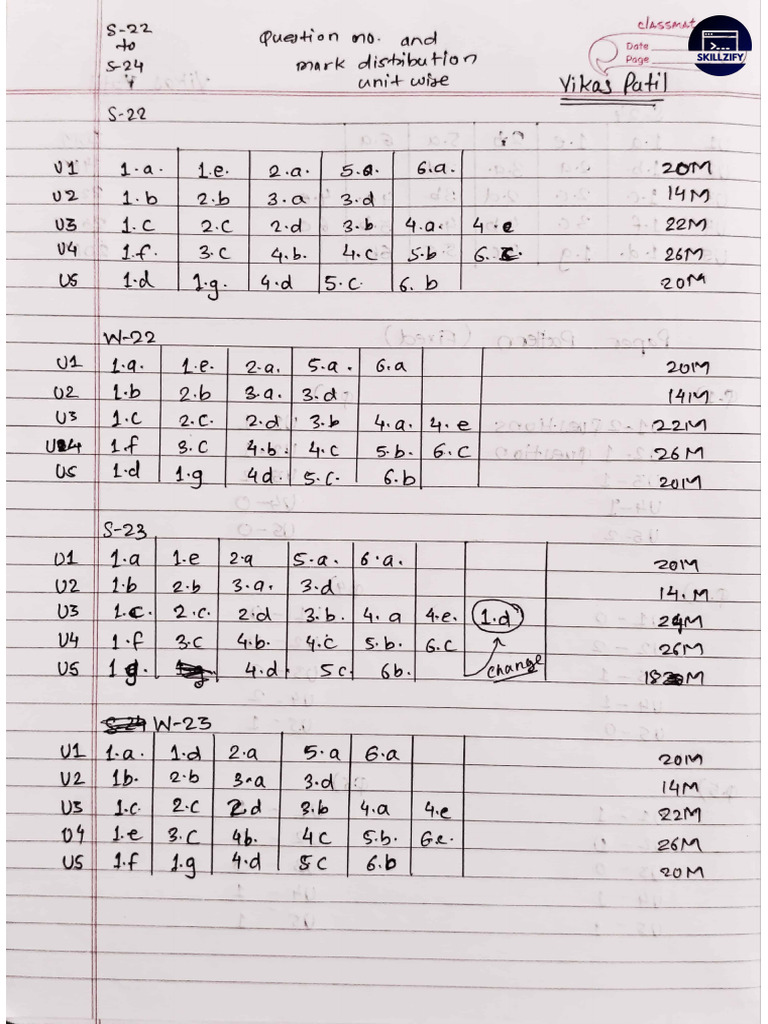 S-22 Question no. and classmat
to mark distibution Date
S-24 unit wise Page
SKILLZIFY
Vikas Patil
S-22
U1 1.a. 1.e. 2.a. 5.a. 6.a. 20M
U2 1.b 2.b 3.a 3.d 14M
U3 1.c 2.c 2.d 3.b 4.a. 4.e 22M
U4 1.f. 3.c 4.b. 4.c 5.b 6.c. 26M
U5 1.d 1.g. 4.d 5.c. 6.b 20M
W-22
U1 1.a. 1.e. 2.a. 5.a. 6.a 20M
U2 1.b 2.b 3.a. 3.d 14M
U3 1.c 2.c. 2.d 3.b 4.a. 4.e 22M
U4 1.f 3.c 4.b. 4.c 5.b. 6.c 26M
U5 1.d 1.g 4d. 5.c. 6.b 20M
S-23
U1 1.a 1.e 2.a 5.a. 6.a. 20M
U2 1.b 2.b 3.a. 3.d 14.M
U3 1.c. 2.c. 2.d 3.b. 4.a 4.e. 1.d 24M
U4 1.f 3.c 4.b. 4.c 5.b. 6.c 26M
U5 1g. 4.d. 5c. 6b. change 18M
W-23
U1 1.a. 1.d 2.a 5.a 6.a 20M
U2 1b. 2.b 3.a 3.d 14M
U3 1.c. 2.c 2d 3.b 4.a 4.e 22M
U4 1.e 3.c 4b. 4c 5.b. 26M
U5 1.f 1.g 4.d 5c 6.b 20M